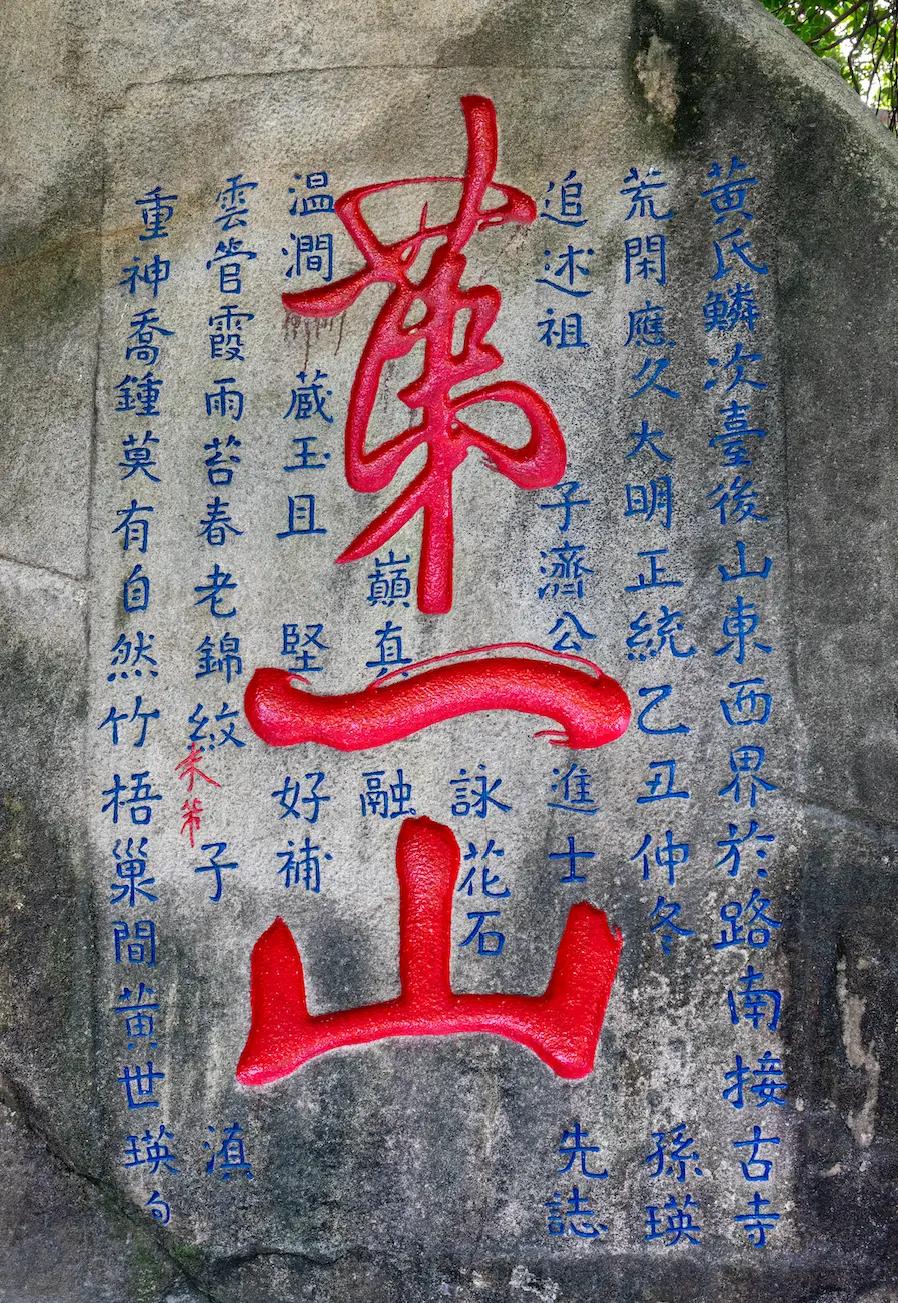 第一山
黄氏鱗次臺後山東西界於路南接古寺
荒閑應久大明正統乙丑仲冬孫瑛
追述祖子濟公進士先誌
詠花石
巔真融
温澗蔵玉且堅好補
雲管霞雨苔春老錦紋子滇
重神喬鍾莫有自然竹梧巢間黄世瑛
米芾